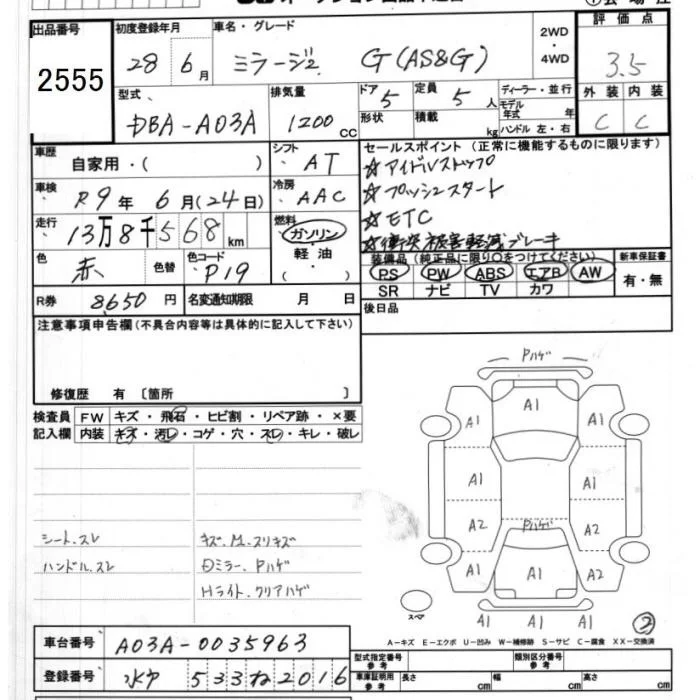 出品番号 初度登録年月 車名・グレード 2WD ・ 4WD 評価点
2555 28 6月 ミラージュ G(AS&G) 3.5
型式 排気量 ドア 5 定員 5人 ディーラー・並行 外装 内装
DBA-A03A 1200cc 形状 積載 kg モデル年式 年 C C
ハンドル 左・右
車歴 自家用・( ) シフト AT セールスポイント (正常に機能するものに限ります)
☆アイドルストップ
車検 R9年 6月(24日) 冷房 AAC ☆プッシュスタート
☆ETC
走行 13万8千568km 燃料 ガソリン ☆衝突被害軽減ブレーキ
軽油
・( )
色 赤 色替 色コード P19
装備品 (純正品に限り○をつけてください) 新車保証書
PS PW ABS エアB AW 有・無
SR ナビ TV カワ
R券 8,650円 名変通知期限 月 日 後日品
注意事項申告欄 (不具合内容等は具体的に記入して下さい)
修復歴 有 〔箇所 〕
検査員 FW キズ・飛石・ヒビ割・リペア跡・×要
記入欄 内装 キズ・汚レ・コゲ・穴・スレ・キレ・破レ
シート、スレ キズ、M、スリキズ
ハンドル、スレ Dミラー、Pハゲ
Hライト、クリアハゲ
Pハゲ
A1
A1 A1
A1 A1
A2 Pハゲ A2
A1 A1 A2
A1 A1 A1
スペア ②
A−キズ E−エクボ U−凹み W−補修跡 S−サビ C−腐食 XX−交換済
車台番号 A03A-0035963 型式指定番号 参考 類別区分番号 参考
登録番号 水戸 533ね2016 車庫証明用 参考 長さ cm 幅 cm 高さ cm